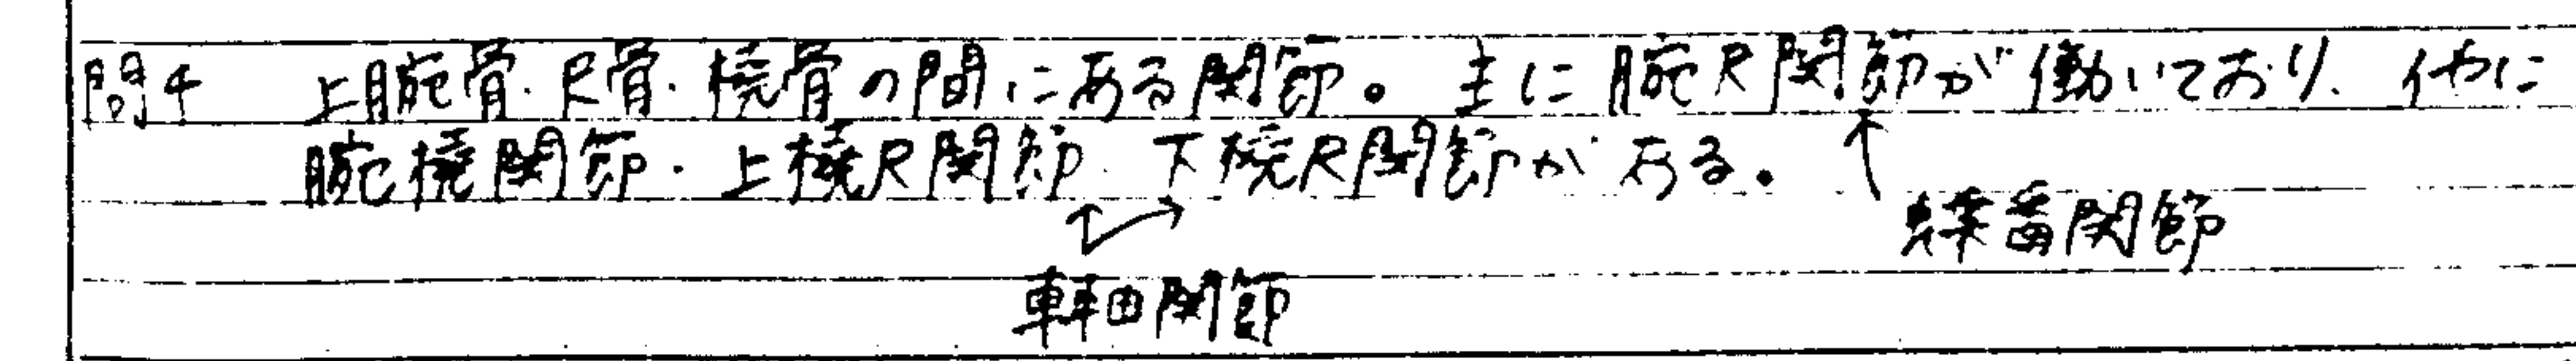 問4 上腕骨・尺骨・橈骨の間にある関節。主に腕尺関節が働いており、他に
腕橈関節・上橈尺関節・下橈尺関節がある。
↑
蝶番関節
車軸関節